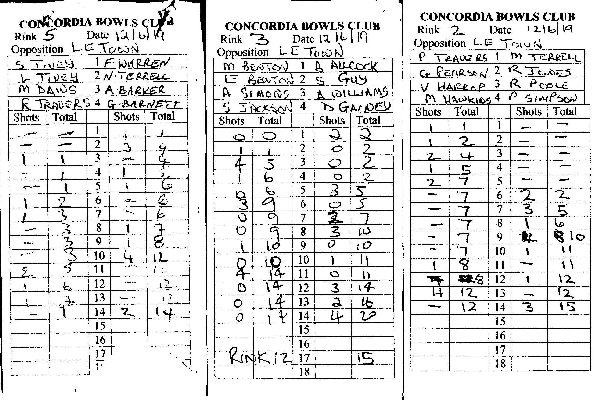 CONCORDIA BOWLS CLUB
Rink 5 Date 12/6/19
Opposition LE TOWN
S TIVEY 1 F WARREN
L TIVEY 2 N TERRELL
M DAWS 3 A BARKER
R TRAVERS 4 G BARNETT
Shots Total Shots Total
1
2 3 4
1 1 3 - 4
4 1
- 1 5 1 6
1 2 6 - 6
1 3 7 - 6
- 3 8 1 7
- 3 9 1 8
- 3 10 4 12
2 5 11
1 6 12 - 12
1 7 13 - 12
14 2 14
15
16
17
18
CONCORDIA BOWLS CLUB
Rink 3 Date 12/6/19
Opposition LE TOWN
M BENTON 1 ALLCOCK
E BENTON 2 S GUY
A SIMONS 3 WILLIAMS
S JACKSON 4 D GANDEY
Shots Total Shots Total
0 0 1 2 2
1 1 2 0 2
4 5 3 0 2
1 6 4 0 2
0 6 5 3 5
3 9 6 0 5
0 9 7 2 7
0 9 8 3 10
1 10 9 0 10
0 10 10 1 11
4 14 11 0 11
0 14 12 3 14
0 14 13 2 16
0 14 4 20
15
16
RINK 12 17 15
18
CONCORDIA BOWLS CLUB
Rink 2 Date 12/6/19
Opposition LE TOWN
P TRAVERS 1 M TERRELL
G PEARSON 2 R JONES
V HARROP 3 R POOLE
M HAWKINS 4 P SIMPSON
Shots Total Shots Total
1 1 1 - -
1 2 2 - -
2 4 3 - -
1 5 4 - -
2 7 5 - -
- 7 6 2 2
- 7 7 3 5
- 7 8 1 6
- 7 9 10
- 7 10 1 11
1 8 11 - 11
8 12 1 12
4 12 13 - 12
- 12 14 3 15
15
16
17
18